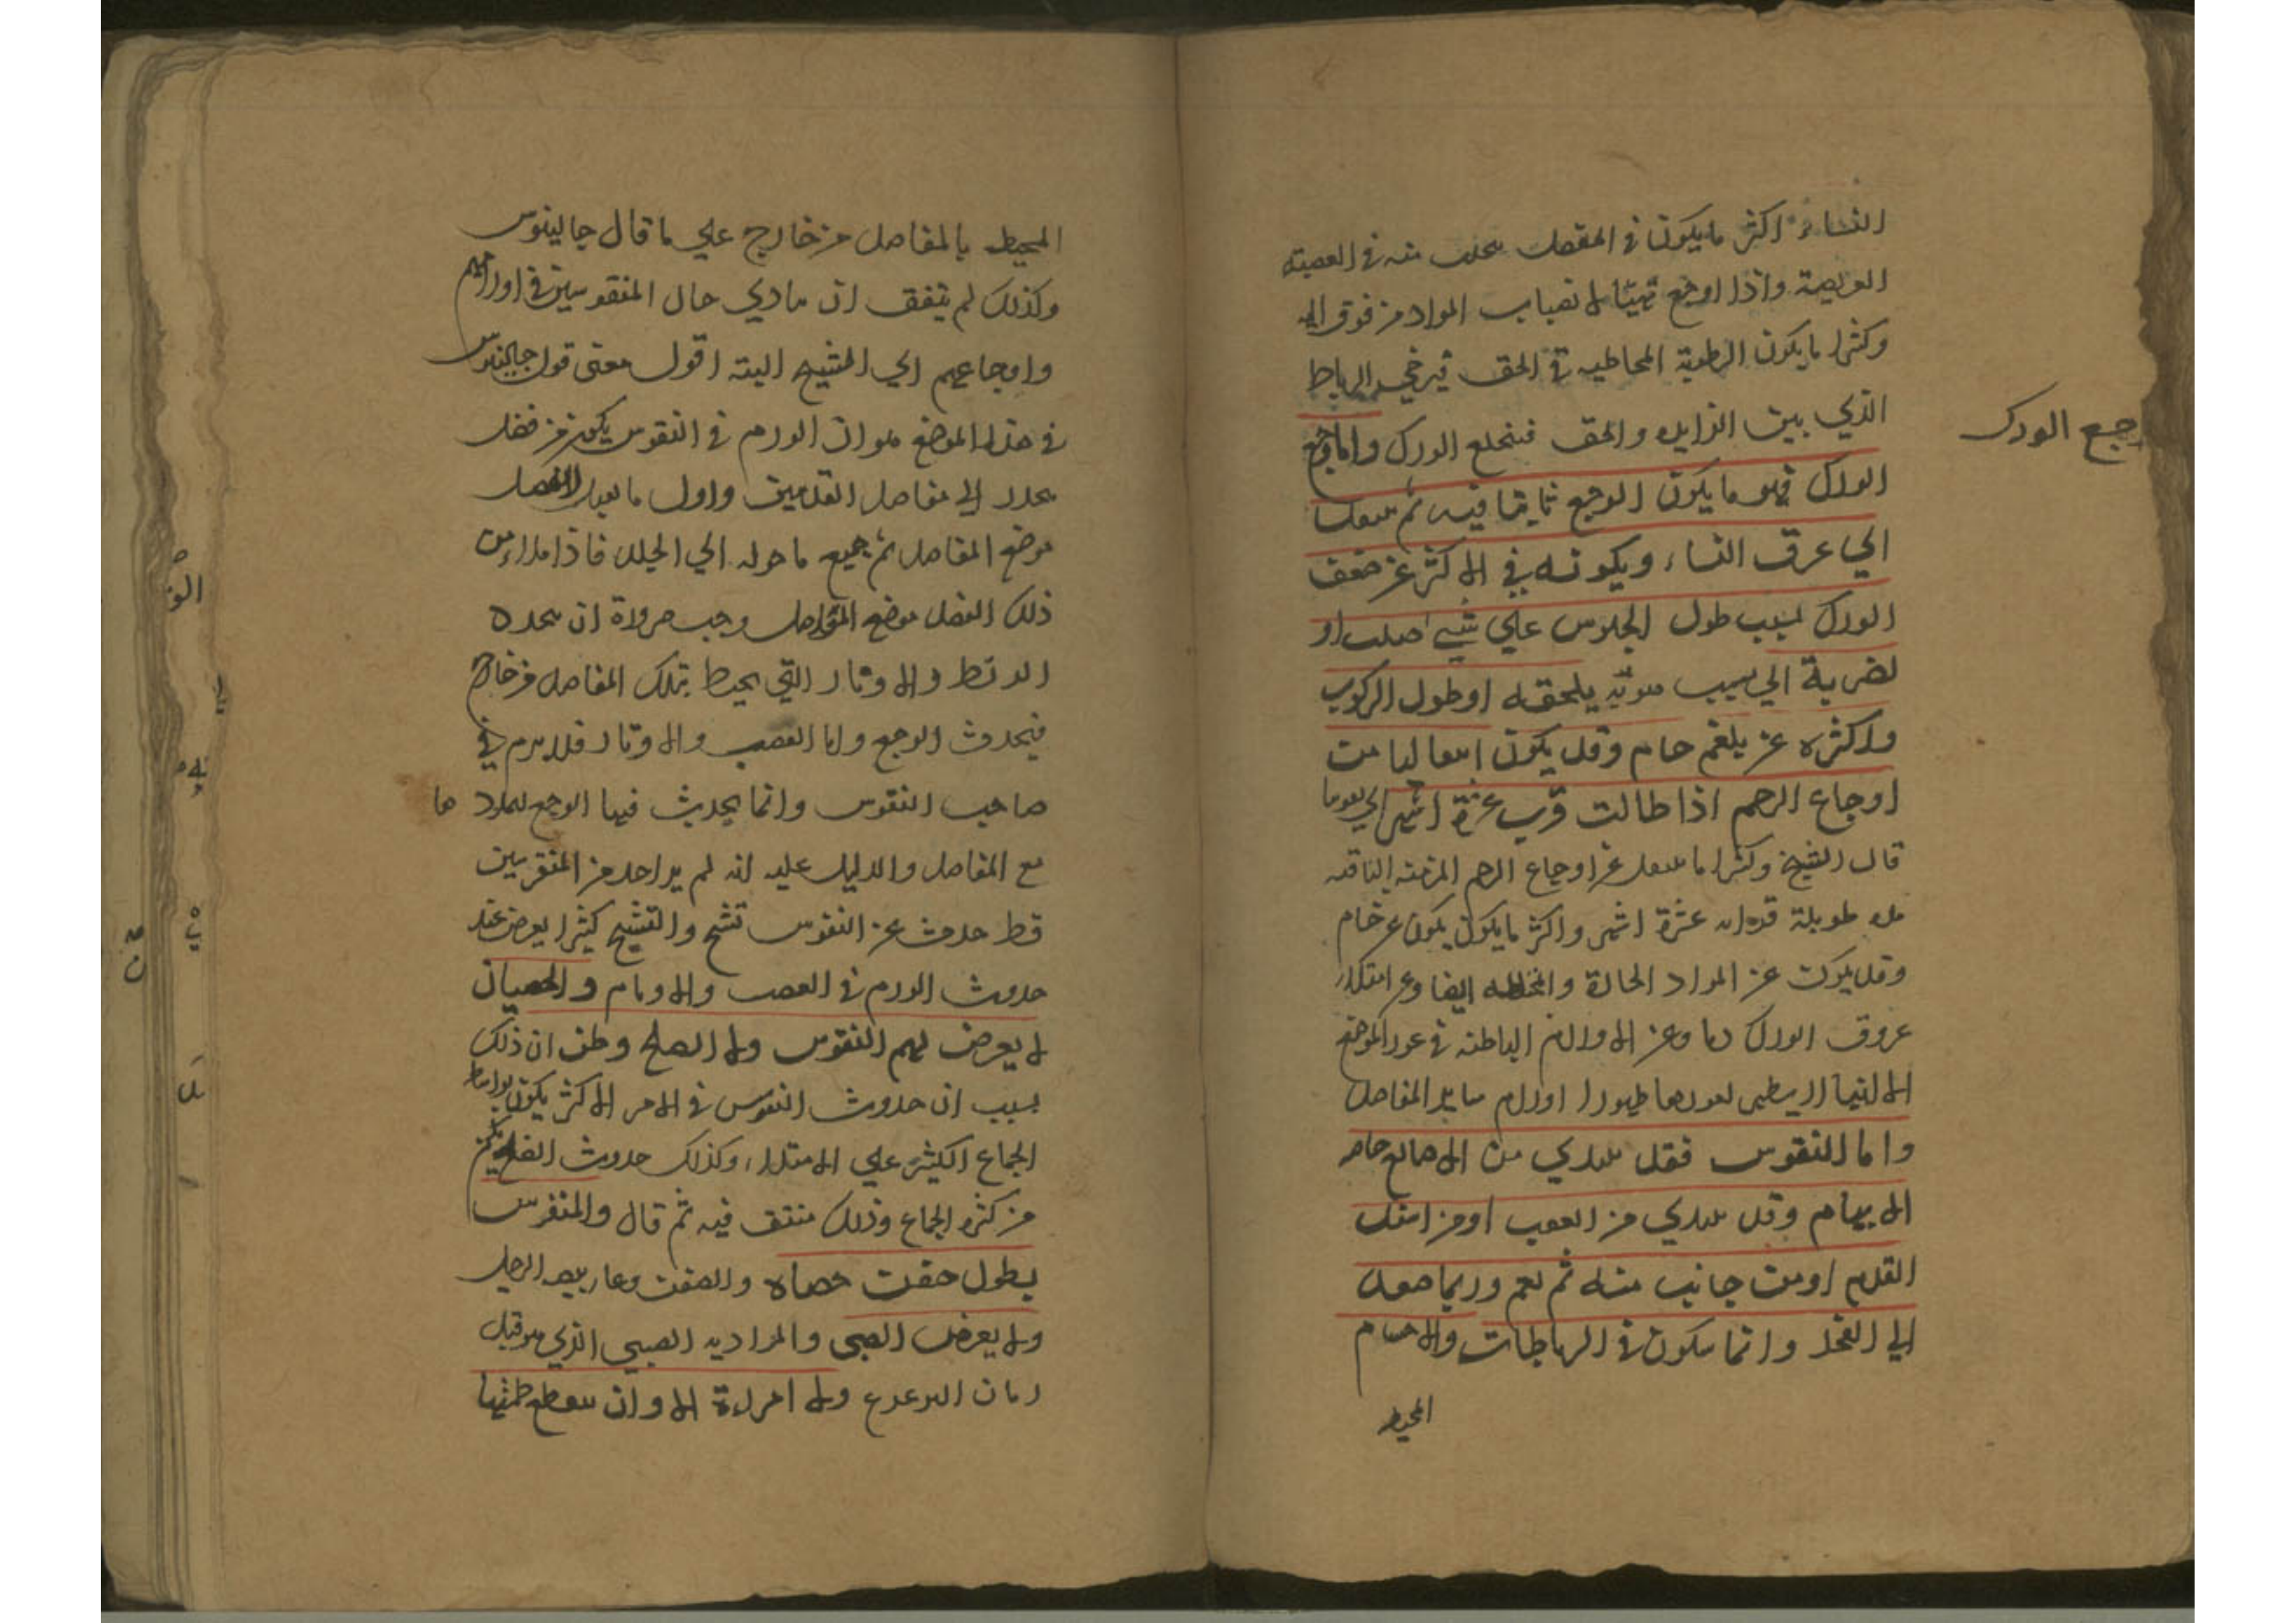 النساء اكثر ما يكون في المفصل منه في العصبة
العريضة واذا اوجع تهيا لانصباب المواد من فوق اليه
وكثيرا ما يكون الرطوبة المخاطيه في الحق فيرخي الرباط
الذي بين الزايده والحق فينخلع الورك واما وجع
وجع الورك
الورك فهو ما يكون الوجع ثابتا فيه ثم ينتقل
الي عرق النساء ويكونه في الاكثر عن ضعف
الورك لسبب طول الجلوس علي شيء صلب او
لضربة الي سبب يلحقه او طول الركوب
واكثره عن بلغم خام وقد يكون انتقاليا من
اوجاع الرحم اذا طالت قرب عشرة اشهر
قال الشيخ وكثيرا ما ينتقل عن اوجاع الرحم المزمنه الباقيه
مده طويلة قدر عشرة اشهر واكثر ما يكون يكون عن خام
وقد يكون عن المواد الحارة والمختلطه ايضا وعن امتلاء
عروق الورك دما وعن الاورام الباطنه في غور الموضع
الا انها لا يظهر لغورها ظهور اورام ساير المفاصل
واما النقرس فقد يبتدي من الاصابع خاصه
الابهام وقد يبتدي من العقب او من اسفل
القدم او من جانب منه ثم يعم وربما صعد
الي الفخذ وانما يكون في الرباطات والاجسام
المحيط
المحيط بالمفاصل من خارج علي ما قال جالينوس
وكذلك لم يتفق ان يتادي حال المنقرسين في اورامهم
واوجاعهم الي التشنج البته اقول معنى قول جالينوس
في هذا الموضع هو ان الورم في النقرس يكون من فضل
ينحدر الي مفاصل القدمين واول ما يقبل الفضل
موضع المفاصل ثم جميع ما حوله الي الجلد فاذا امتلاء من
ذلك الفضل موضع المفاصل وجب ضرورة ان يتمدد
الربط والاوتار التي يحيط بتلك المفاصل من خارج
فيحدث الوجع واما العصب والاوتار فلا يرم في
صاحب النقرس وانما يحدث فيها الوجع لتمددها
مع المفاصل والدليل عليه انه لم ير احد من المنقرسين
قط حدث عن النقرس تشنج والتشنج كثيرا يعرض عند
حدوث الورم في العصب والاوتار والخصيان
لا يعرض لهم النقرس ولا الصلع وظن ان ذلك
بسبب ان حدوث النقرس في الامر الاكثر يكون بواسطة
الجماع الكثير علي الامتلاء وكذلك حدوث الصلع يكون
من كثرة الجماع وذلك منتف فيه ثم قال والمنقرس
يطول خصاه
ولا يعرض الصبي والمراد به الصبي الذي هو قبل
زمان الترعرع ولا امراة الا وان ينقطع طمثها